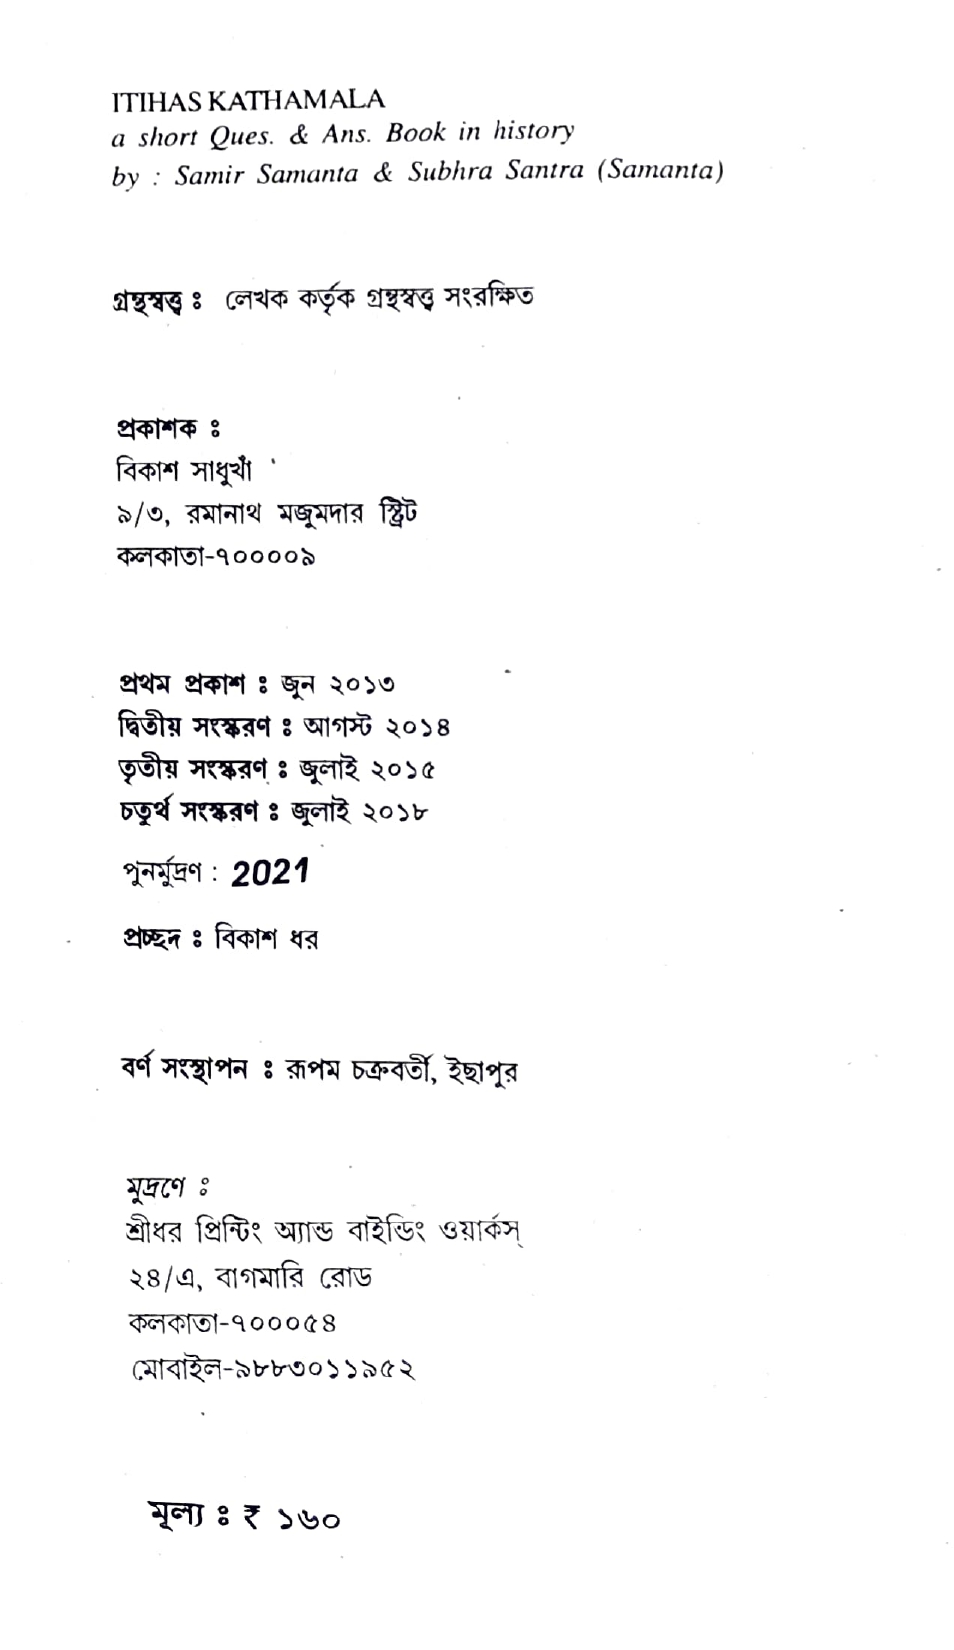 ITIHAS KATHAMALA
a short Ques. & Ans. Book in history
by : Samir Samanta & Subhra Santra (Samanta)
গ্রন্থস্বত্ত্ব ঃ লেখক কর্তৃক গ্রন্থস্বত্ত্ব সংরক্ষিত
প্রকাশক ঃ
বিকাশ সাধুখাঁ
৯/৩, রমানাথ মজুমদার স্ট্রিট
কলকাতা-৭০০০০৯
প্রথম প্রকাশ ঃ জুন ২০১৩
দ্বিতীয় সংস্করণ ঃ আগস্ট ২০১৪
তৃতীয় সংস্করণ ঃ জুলাই ২০১৫
চতুর্থ সংস্করণ ঃ জুলাই ২০১৮
পুনর্মুদ্রণ : 2021
প্রচ্ছদ ঃ বিকাশ ধর
বর্ণ সংস্থাপন ঃ রূপম চক্রবর্তী, ইছাপুর
মুদ্রণে ঃ
শ্রীধর প্রিন্টিং অ্যান্ড বাইন্ডিং ওয়ার্কস্
২৪/এ, বাগমারি রোড
কলকাতা-৭০০০৫৪
মোবাইল-৯৮৮৩০১১৯৫২
মূল্য ঃ ₹ ১৬০